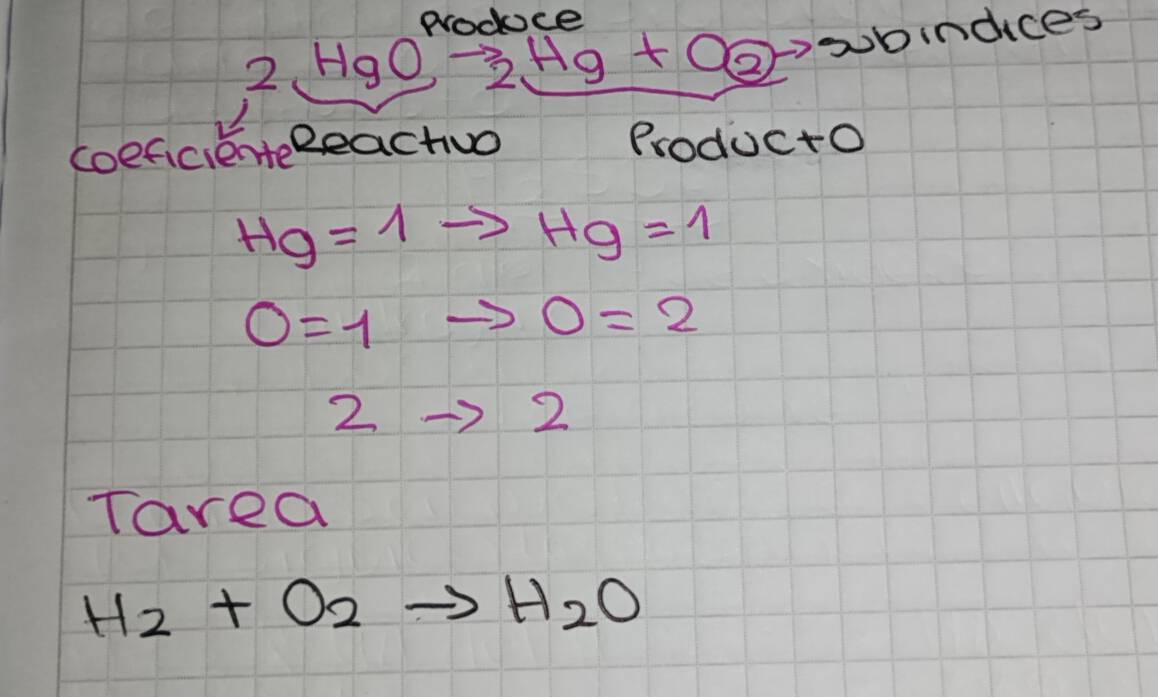 Produce
2 HgO → 2 Hg + O2 → subindices
coeficiente Reactivo Producto
Hg = 1 → Hg = 1
O = 1 → O = 2
2 → 2
Tarea
H2 + O2 → H2O